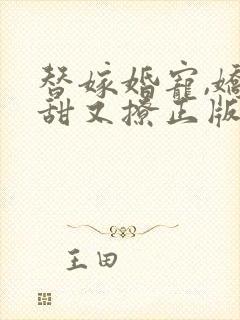 替嫁婚宠,娇
甜又撩正版
王田